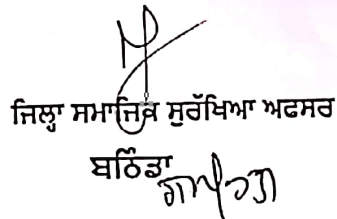 ਜਿਲ੍ਹਾ ਸਮਾਜਿਕ ਸੁਰੱਖਿਆ ਅਫਸਰ
ਬਠਿੰਡਾ